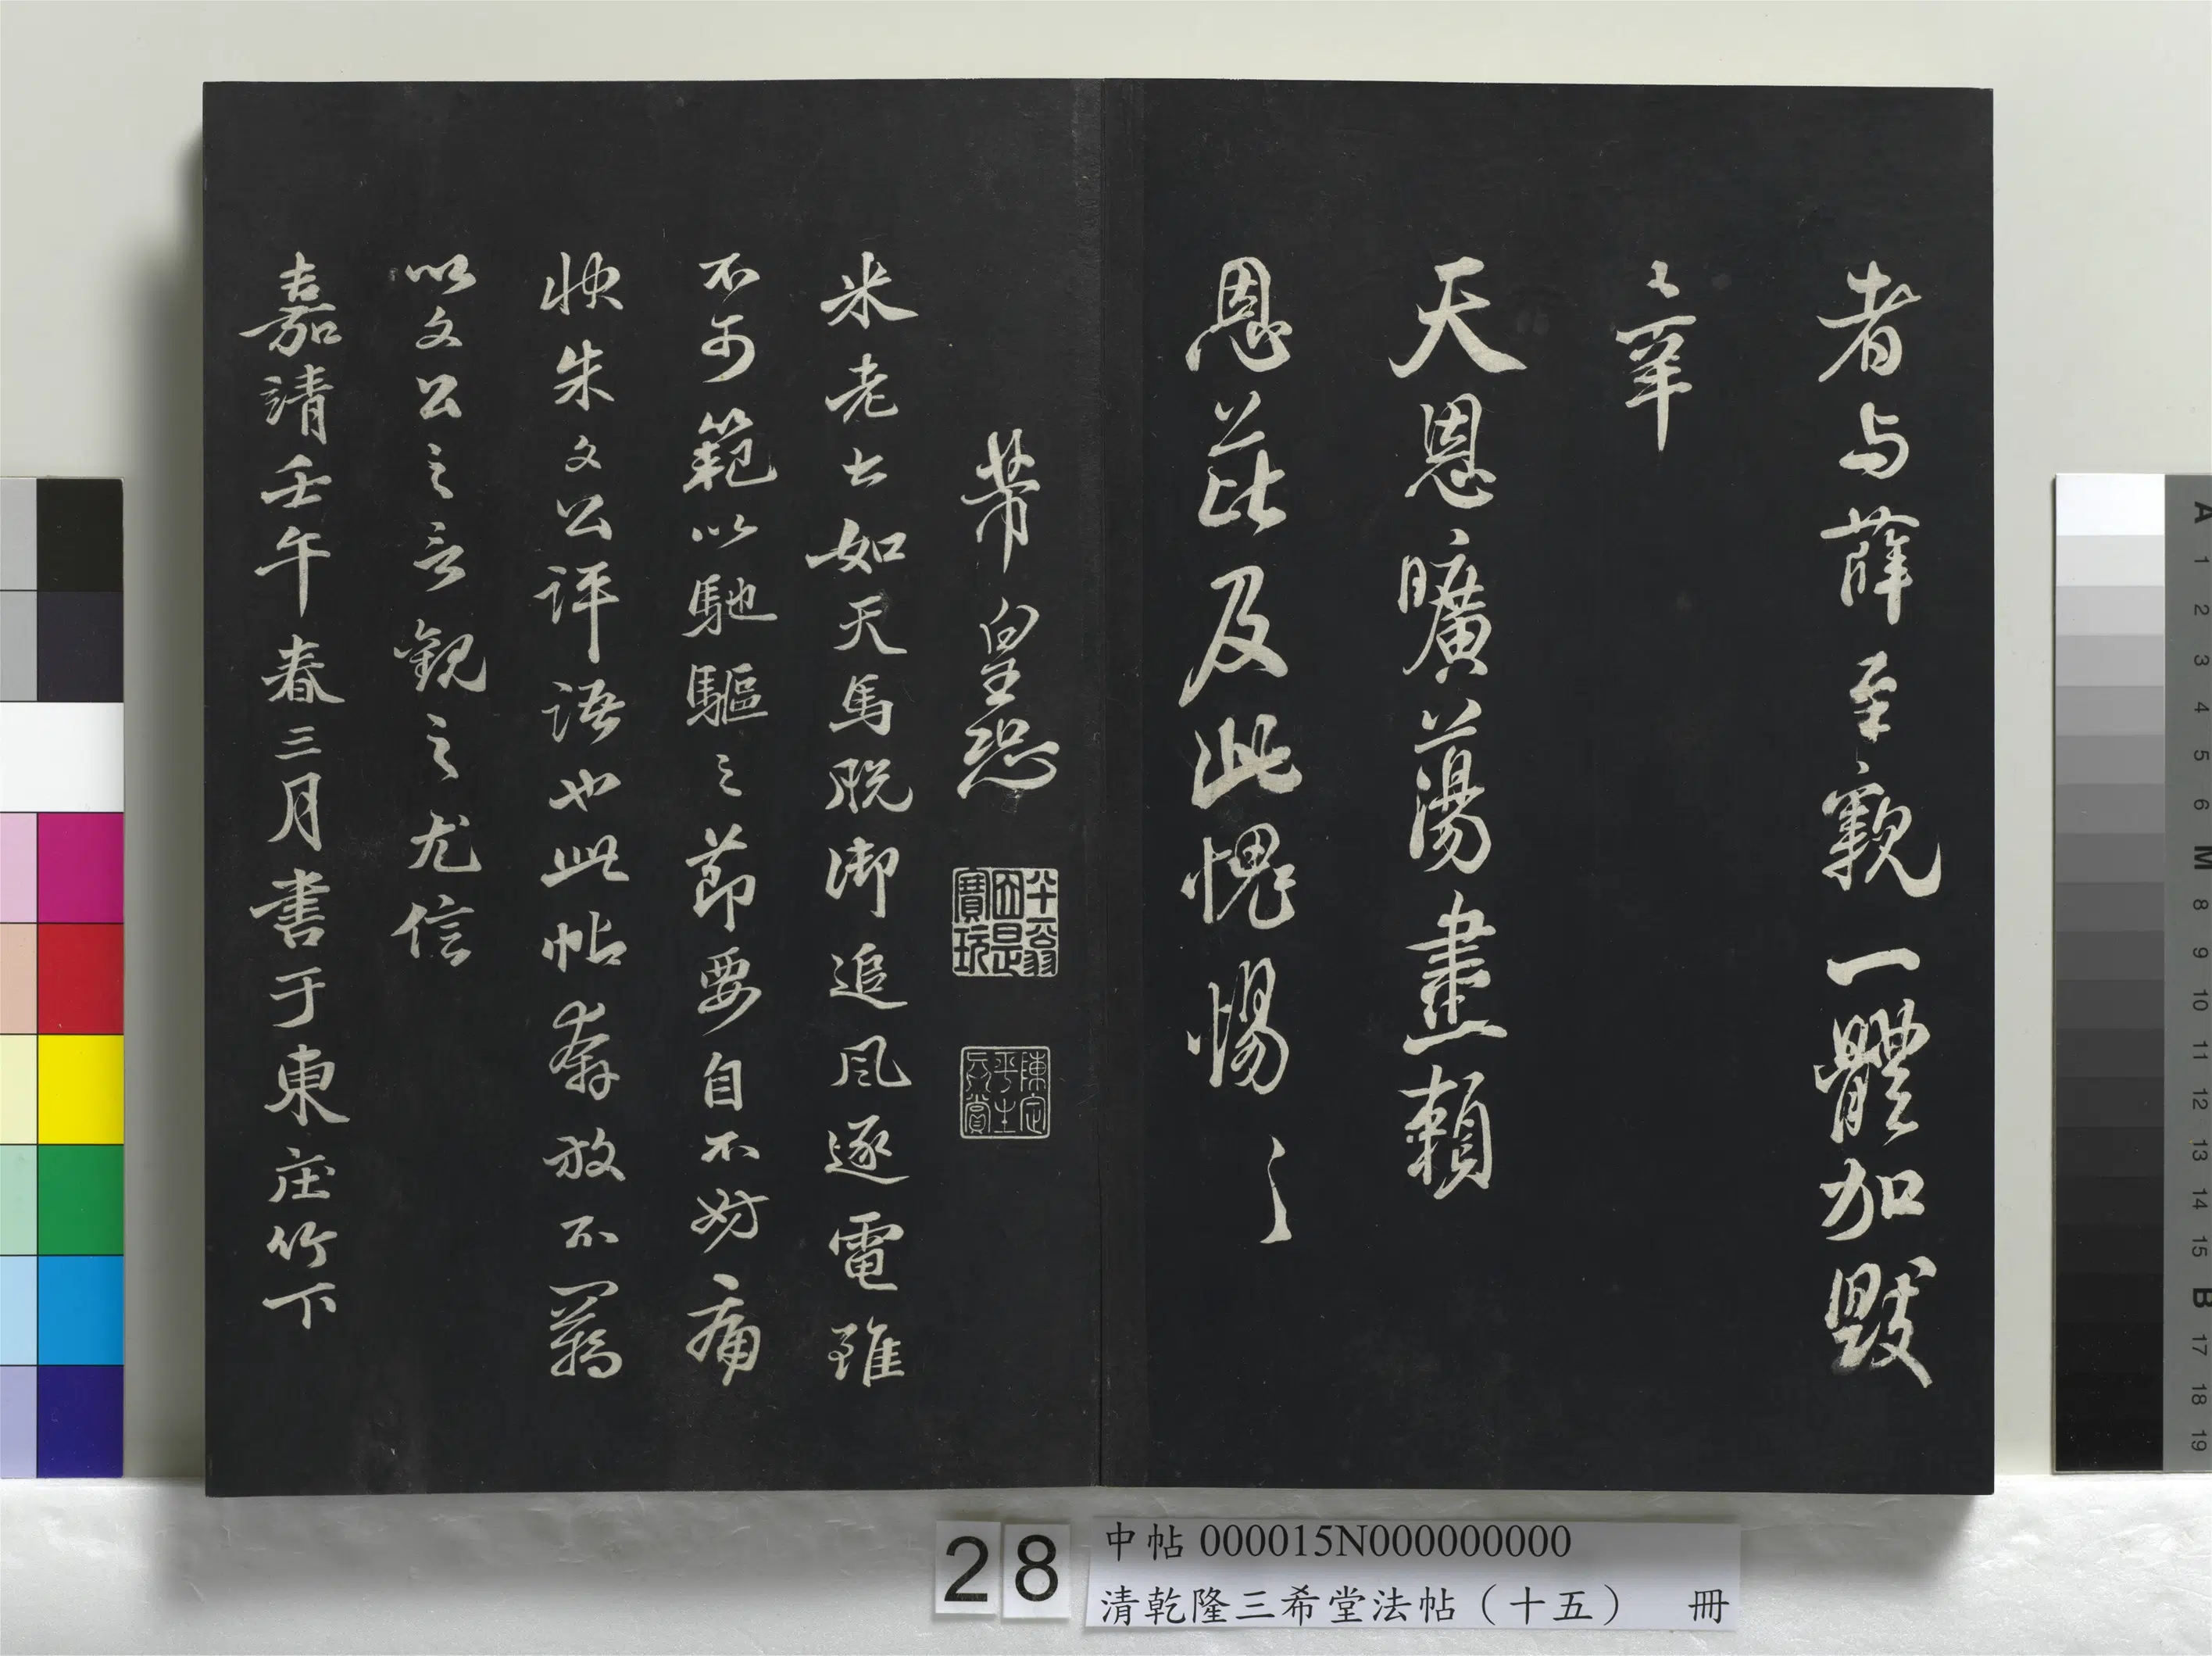 者与薛至親一體加毀
之幸
天恩曠蕩盡賴
恩芘及此愧惕〻
芾皇恐
陳定
平生
真賞
米老書如天馬脫御追風逐電雖
不可範以馳驅之節要自不妨痛
快朱文公評語也此帖奔放不羈
以文公之言觀之尤信
嘉靖壬午春三月書于東庄竹下
28
中帖 000015N000000000
清乾隆三希堂法帖（十五） 冊
A 1 2 3 4 5 6 M 8 9 10 11 12 13 14 15 B 17 18 19